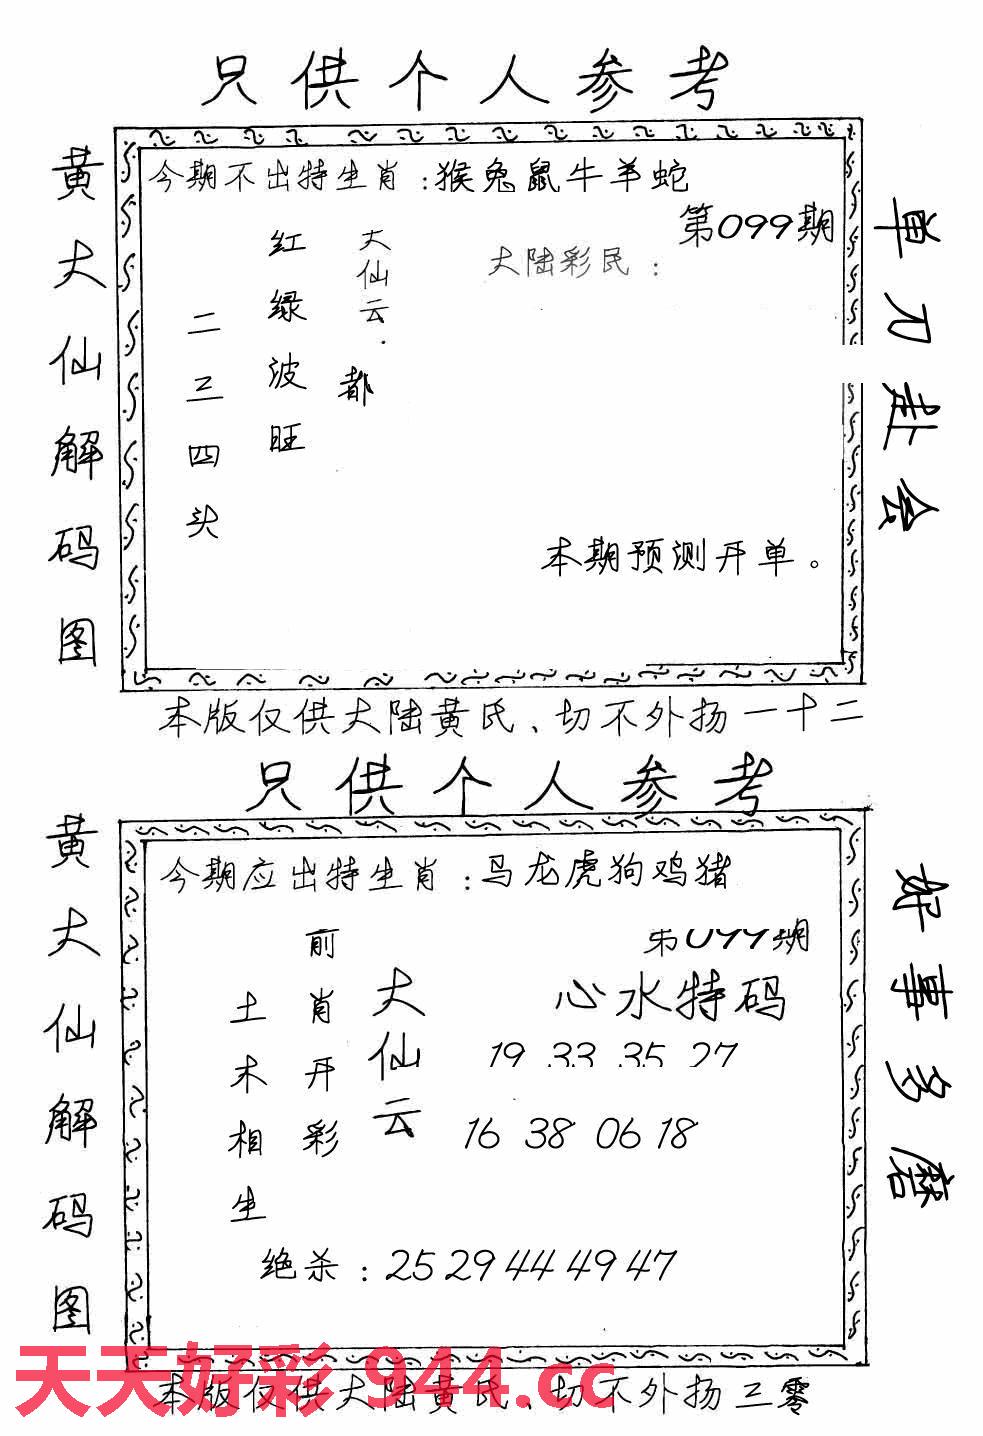 只供个人参考
黄大仙解码图
今期不出特生肖：猴兔鼠牛羊蛇
第099期
大陆彩民：
大仙云．
都
红绿波旺
二三四头
本期预测开单。
单刀赴会
本版仅供大陆黄氏、切不外扬一十二
只供个人参考
黄大仙解码图
今期应出特生肖：马龙虎狗鸡猪
第099期
心水特码
19 33 35 27
16 38 06 18
大仙云
前肖开彩
土木相生
绝杀：25 29 44 49 47
好事多磨
天天好彩 944.cc
本版仅供大陆黄氏、切不外扬三零